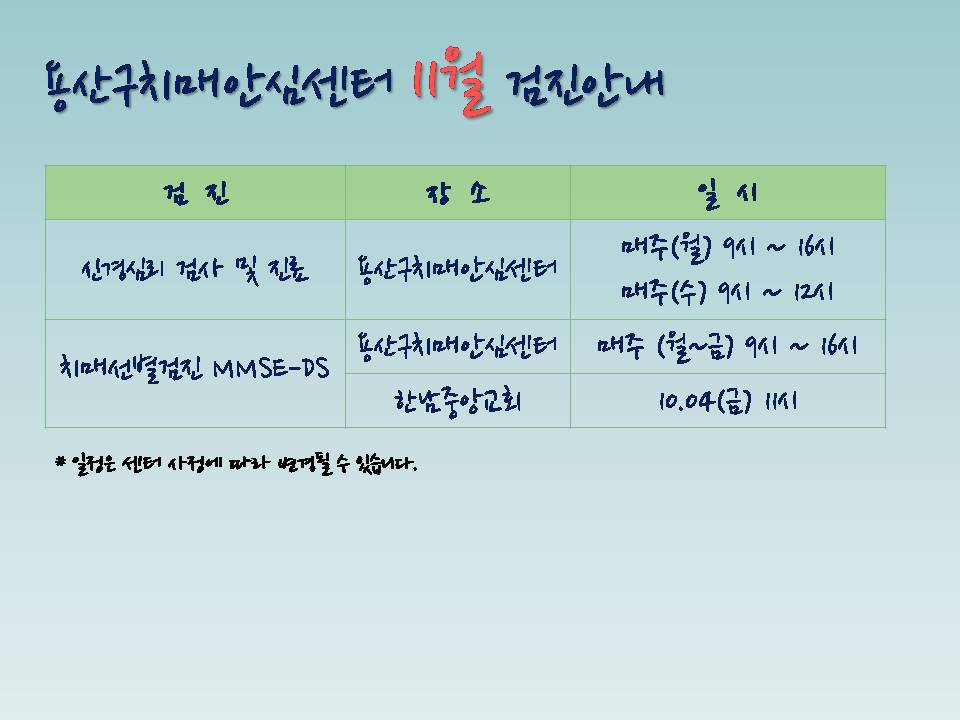 용산구치매안심센터 11월 검진안내
검 진 장 소 일 시
신경심리 검사 및 진료 용산구치매안심센터 매주(월) 9시 ~ 16시
매주(수) 9시 ~ 12시
치매선별검진 MMSE-DS 용산구치매안심센터 매주 (월~금) 9시 ~ 16시
한남중앙교회 10.04(금) 11시
* 일정은 센터 사정에 따라 변경될 수 있습니다.